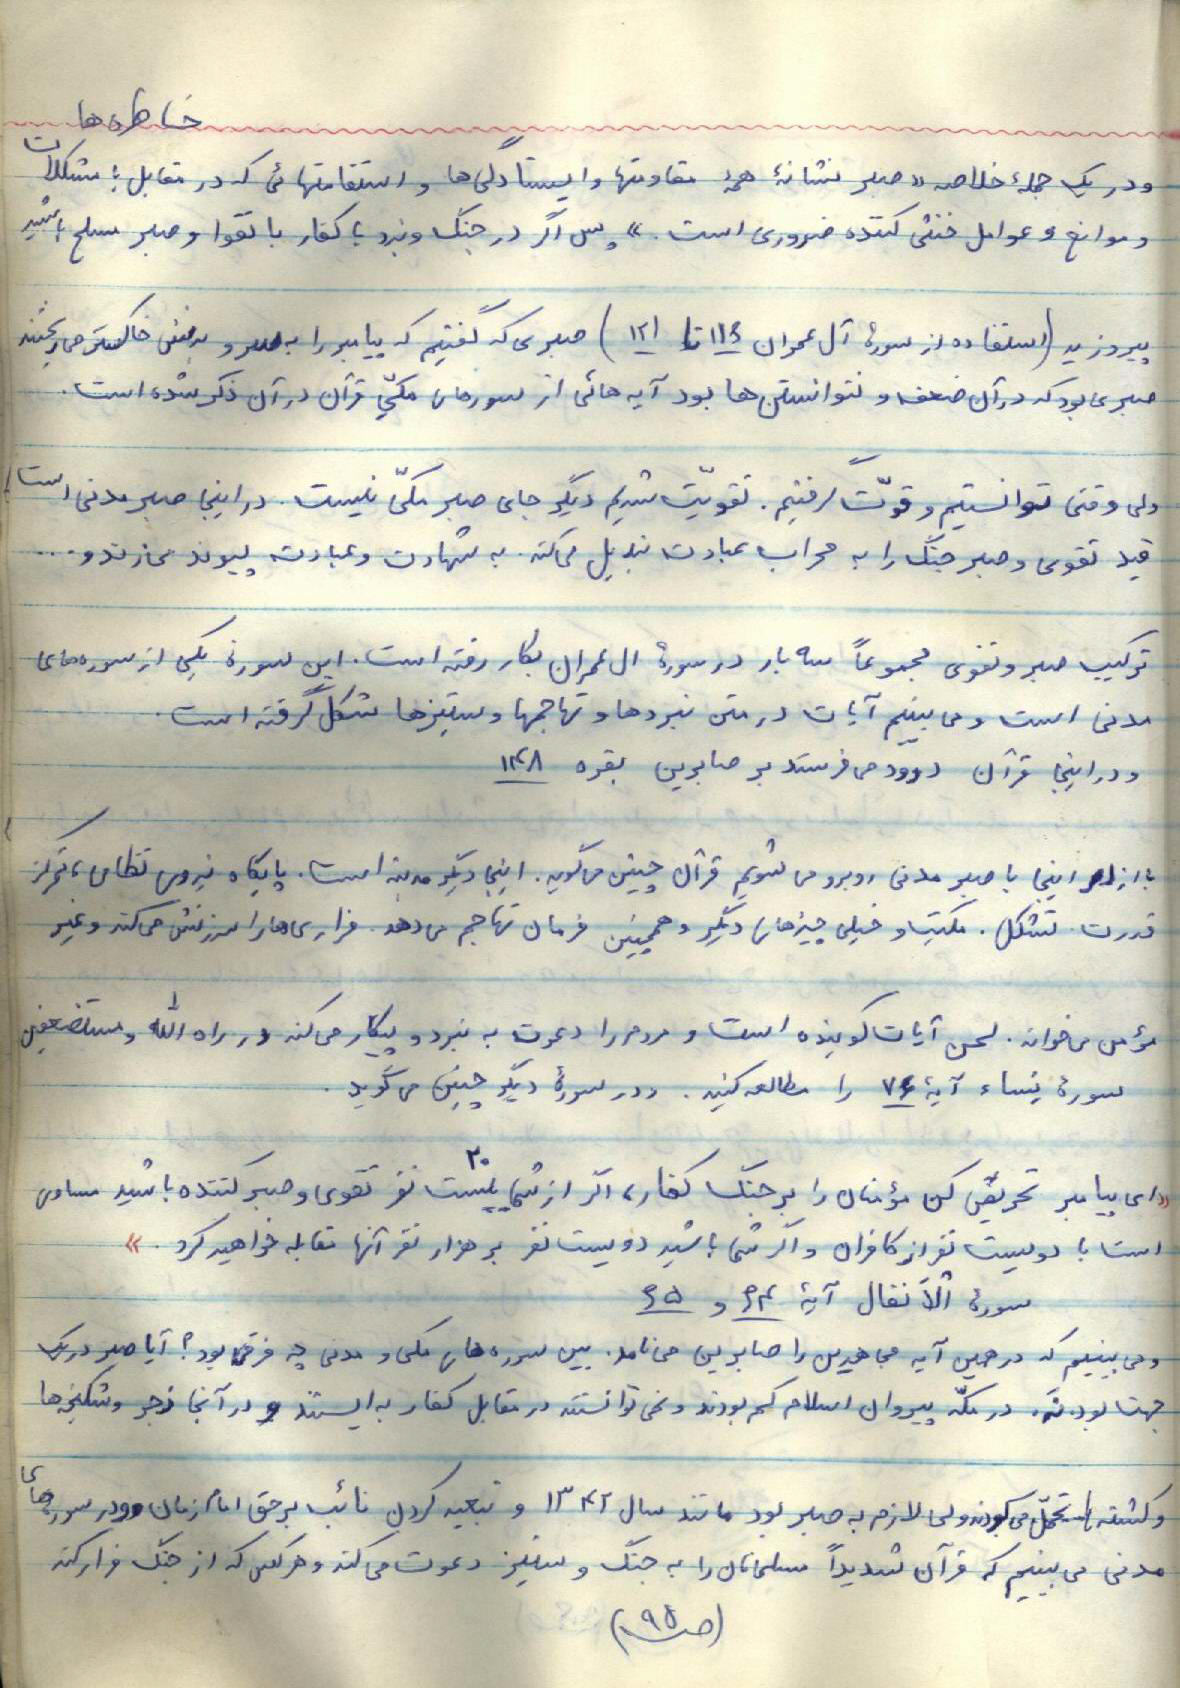 خاطره ها
و در یک جملۀ خلاصه «صبر نشانۀ همۀ مقاومتها و ایستادگی ها و استقامتهائی که در مقابل با مشکلات
و موانع و عوامل خنثی کننده ضروری است.» پس اگر در جنگ و نبرد با کفار با تقوا و صبر مسلح باشید
پیروزید (استفاده از سورۀ آل عمران ۱۱۶ تا ۱۲۱) صبری که گفتیم که پیامبر را به سر و رویش خاکستر می ریختند
صبری بود که در آن ضعف و نتوانستن ها بود آیه هائی از سورهای مکّیِ قرآن در آن ذکر شده است.
ولی وقتی توانستیم و قوّت گرفتیم. تقویّت شدیم دیگر جای صبر مکّی نیست. در اینجا صبر مدنی است
قید تقوی و صبر جنگ را به محراب عبادت تبدیل می کند. به شهادت و عبادت پیوند می زند و ....
ترکیب صبر و تقوی مجموعاً سه بار در سورۀ ال عمران بکار رفته است. این سورۀ یکی از سوره های
مدنی است و می بینیم آیات در متن نبردها و تهاجمها و ستیزها شکل گرفته است.
و در اینجا قرآن درود می فرستد بر صابرین بقره ۱۴۸
باز اینجا با صبر مدنی روبرو می شویم قرآن چنین می گوید. اینجا دیگر مدینه است. پایگاه نیروی نظامی، تمرکز
قدرت. تشکل. مکتب و خیلی چیزهای دیگر و همچنین فرمان تهاجم می دهد. فراری ها را سرزنش می کند و غیر
مؤمن می خواند. لحن آیات کوبنده است و مردم را دعوت به نبرد و پیکار می کند در راه الله و مستضعفین
سورۀ نساء آیۀ ۷۶ را مطالعه کنید. و در سورۀ دیگر چنین می گوید.
«ای پیامبر تحریض کن مؤمنان را بر جنگ کفار، اگر از شما بیست ۲۰ نفر تقوی و صبر کننده باشید مساوی
است با دویست نفر از کافران و اگر شما باشید دویست نفر بر هزار نفر آنها مقابله خواهید کرد.»
سورۀ الْاَنفال آیۀ ۶۴ و ۶۵
و می بینیم که در همین آیه مجاهدین را صابرین می نامد. بین سوره های مکی و مدنی چه فرقی بود؟ آیا صبر در یک
جهت بود. نَه. در مکّه پیروان اسلام کم بودند و نمی توانستند در مقابل کفار به ایستند و در آنجا زجر و شکنجه ها
و کشته ها تحمّل می کردند ولی لازم به صبر بود مانند سال ۱۳۴۲ و تبعید کردن نائب بر حق امام زمان و در سوره هائی
مدنی می بینیم که قرآن شدیداً مسلمانان را به جنگ و ستیز دعوت می کند و هر کس که از جنگ فرار کند
(صـ ۹۵)